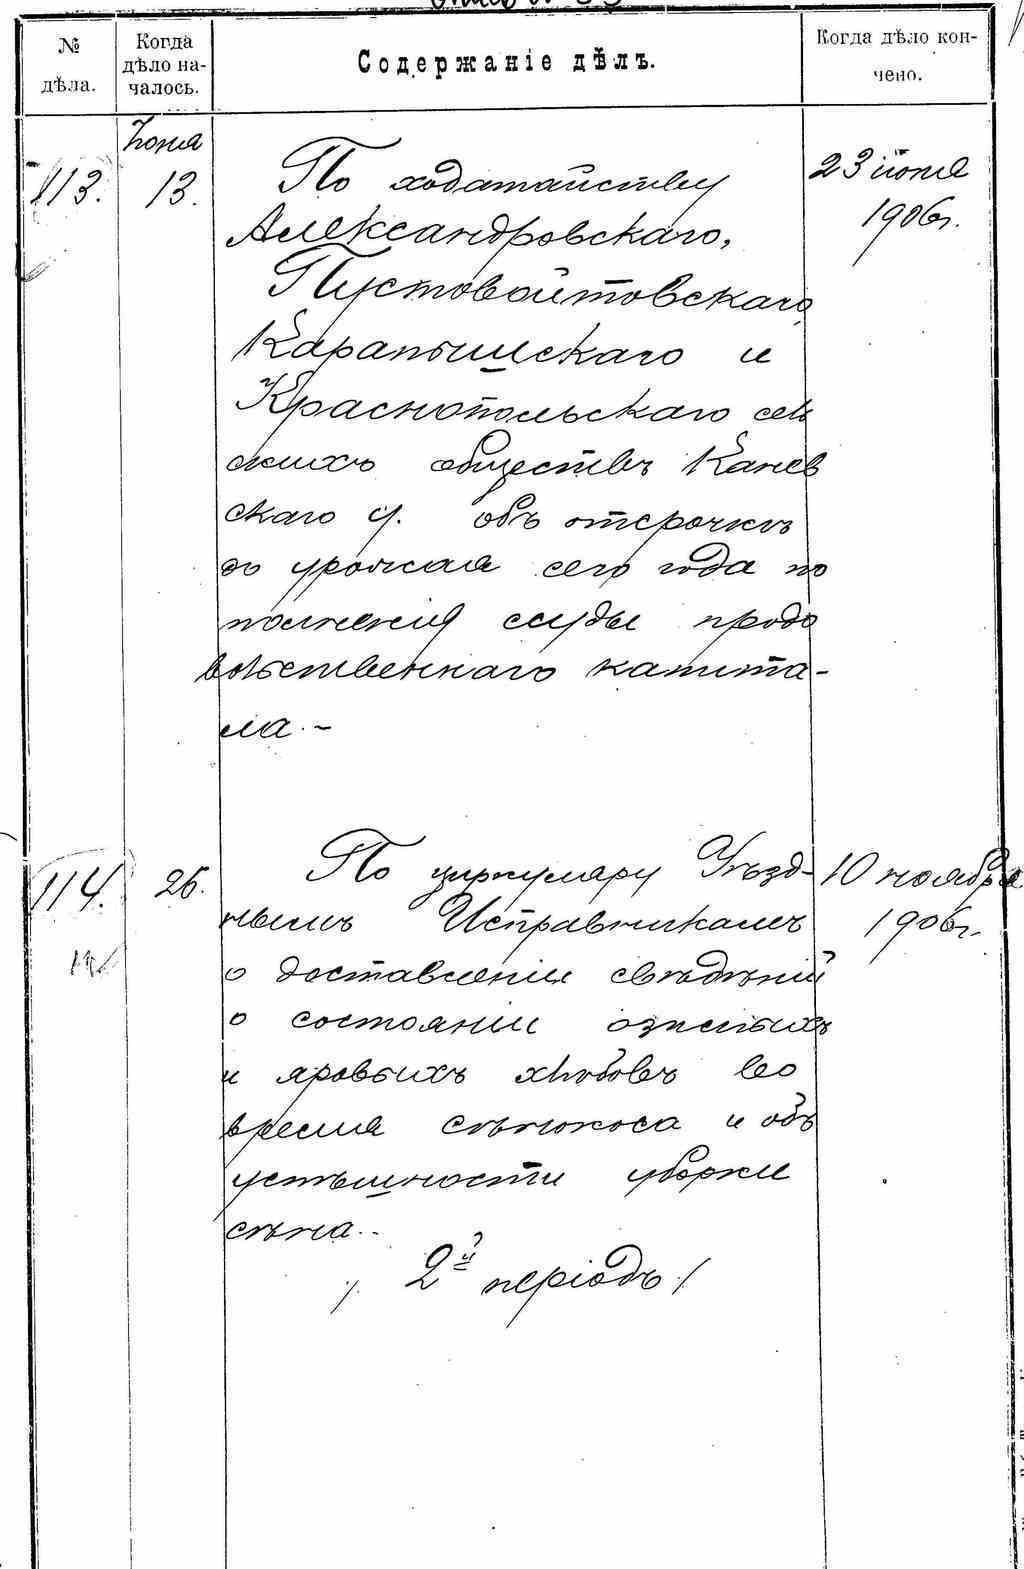 № дѣла.
Когда дѣло на-
чалось.
Содержаніе дѣлъ.
Когда дѣло кон-
чено.
Іюня
113.
13.
По ходатайству
Александровскаго,
Пустовойтовскаго,
Карапышскаго и
Краснопольскаго сель
скихъ обществъ Канев
скаго у. объ отсрочкѣ
до урожая сего года по
полненія ссуды продо
вольственнаго капита-
ла.-
23 іюня
1906 г.
114.
26.
По циркуляру Уѣзд-
нымъ Исправникамъ
о доставленіи свѣдѣній
о состояніи озимыхъ
и яровыхъ хлѣбовъ во
время сѣнокоса и объ
успѣшности уборки
сѣна.-
/. 2й періодъ./
10 ноября
1906 г.